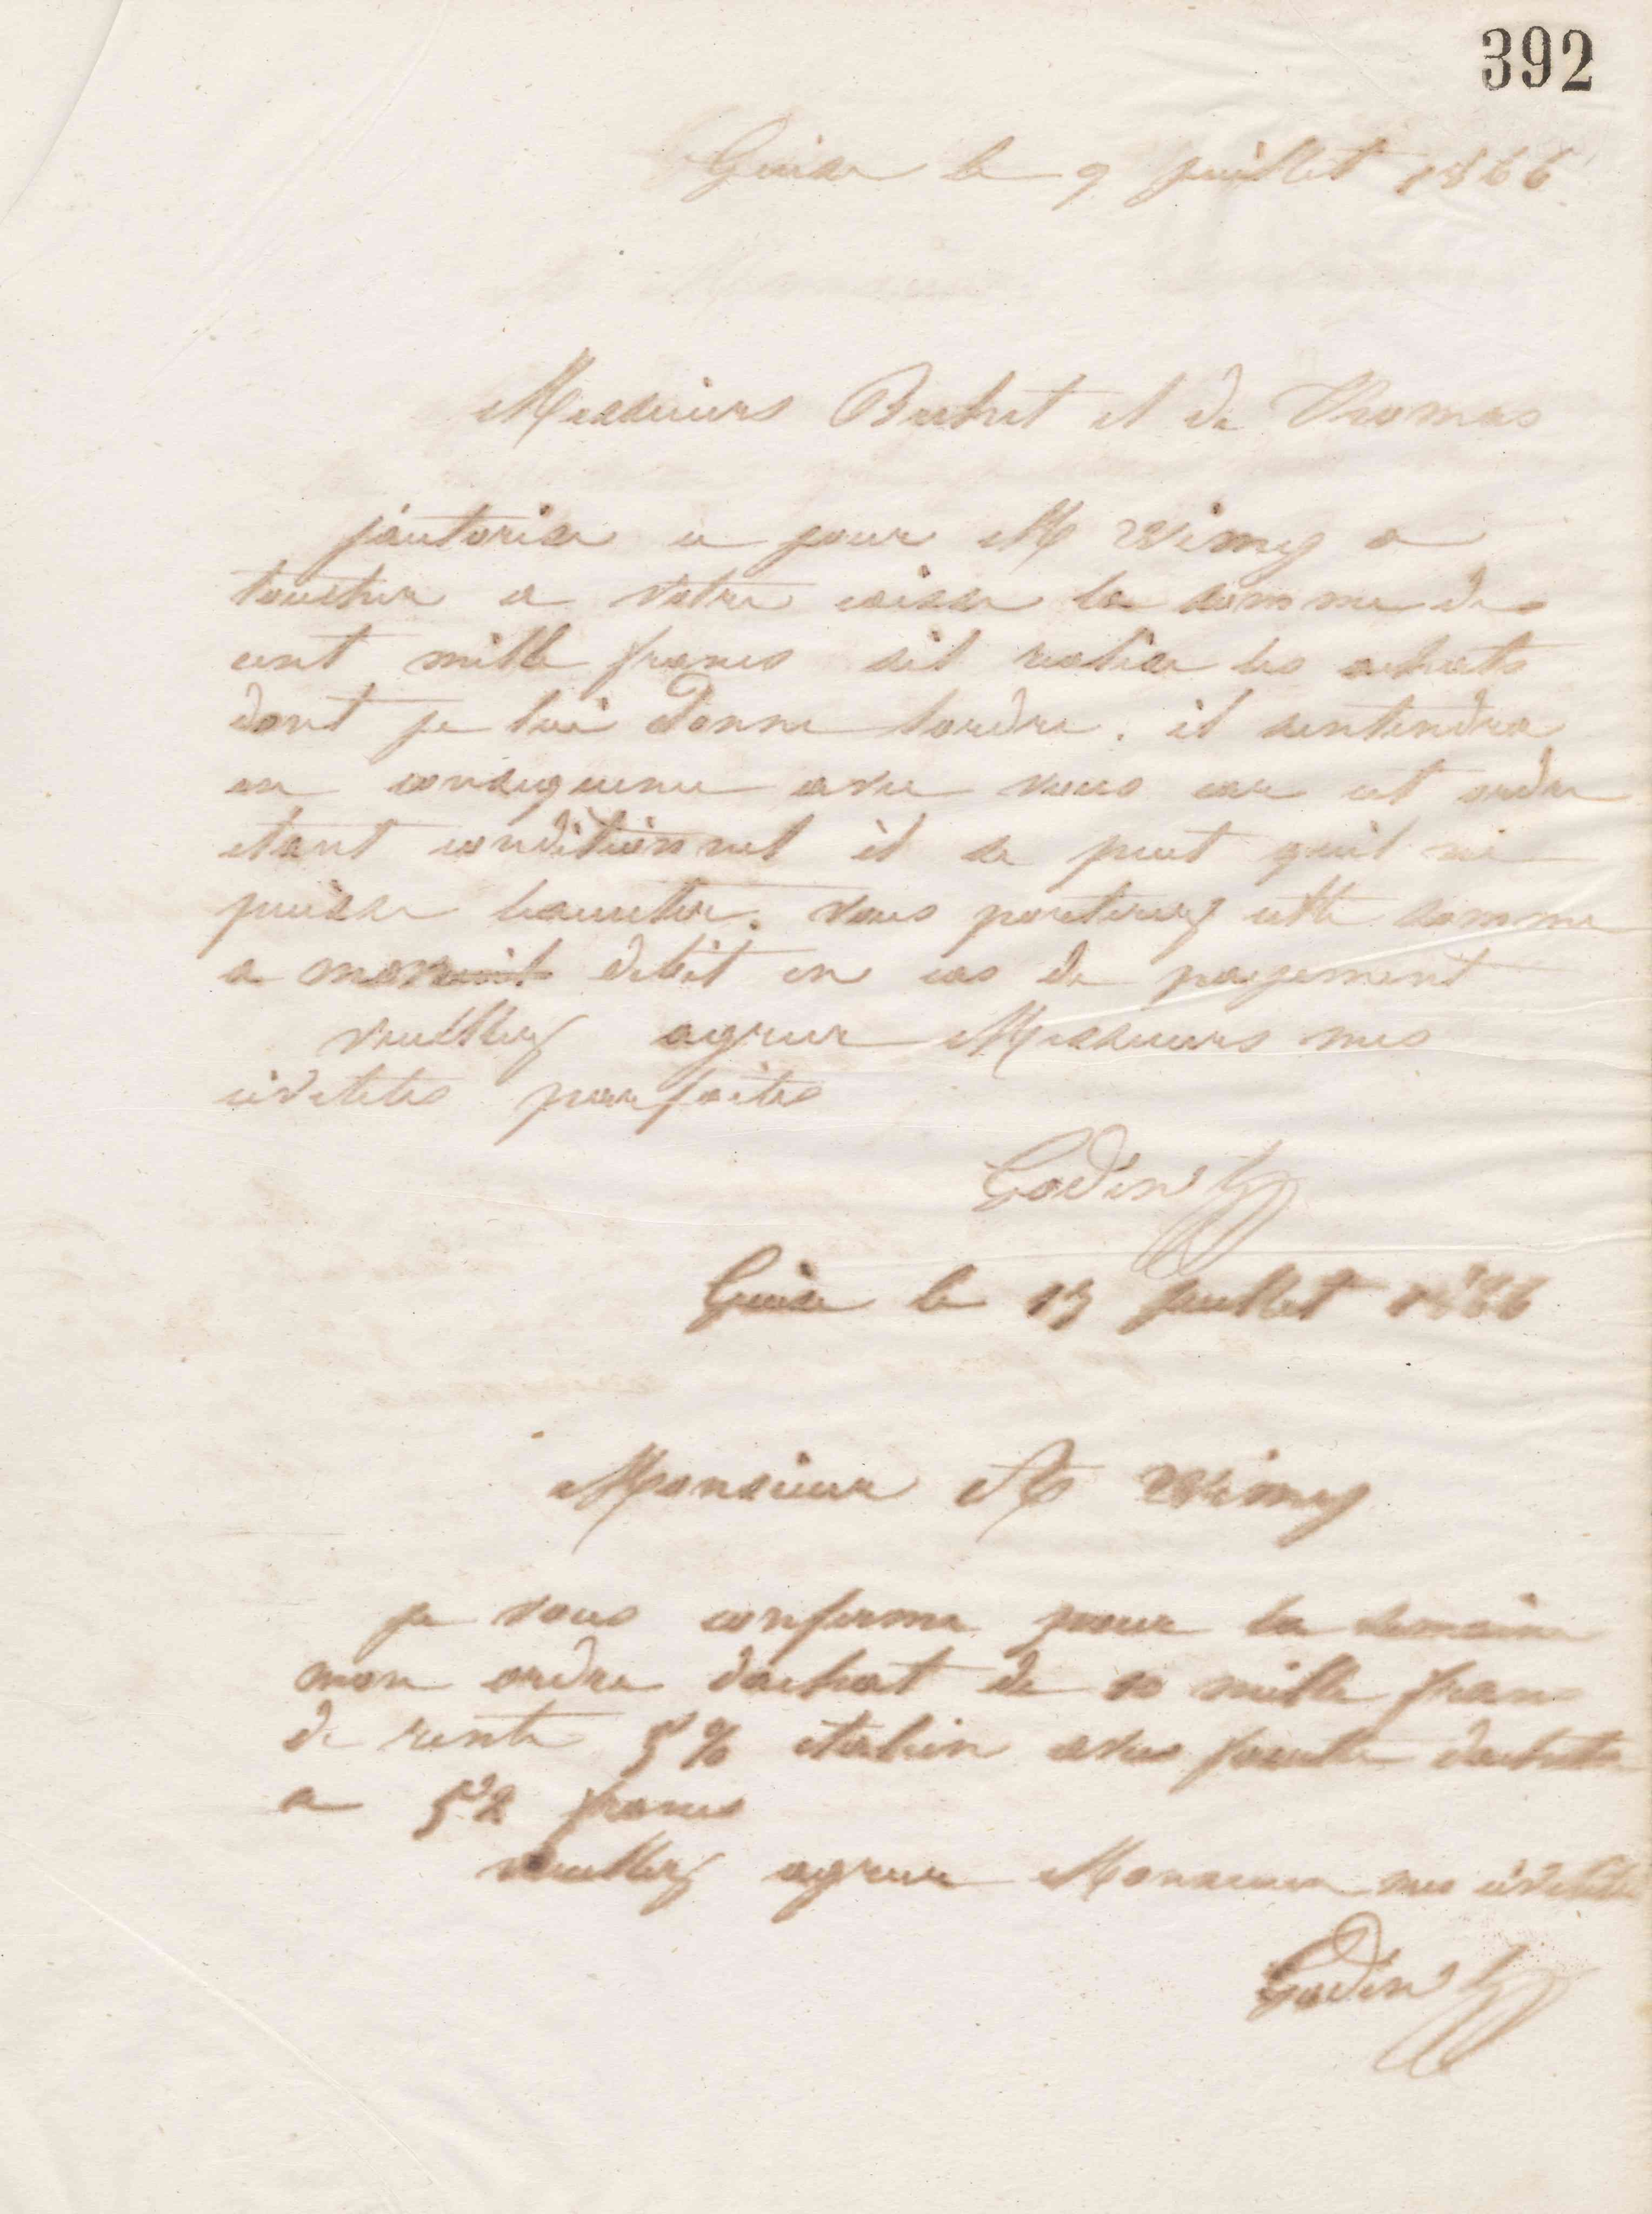 392
Guise le 9 juillet 1866
Messieurs Bechet et de Thomas
j'autorise ce jour M Wimy a
toucher a votre caisse la somme de
cent mille francs sil realise les achats
dont je lui donne lordre. il sentendra
en consequence avec vous car cet ordre
etant conditionnel il se peut quil ne
puisse lexecuter. vous porterez cette somme
a mon debit en cas de payement
veuillez agreer Messieurs mes
civilites parfaites
Godin
Guise le 13 juillet 1866
Monsieur A Wimy
je vous confirme pour la semaine
mon ordre dachat de 10 mille francs
de rente 5% italien avec faculte dachats
a 52 francs
veuillez agreer Monsieur mes civilites
Godin